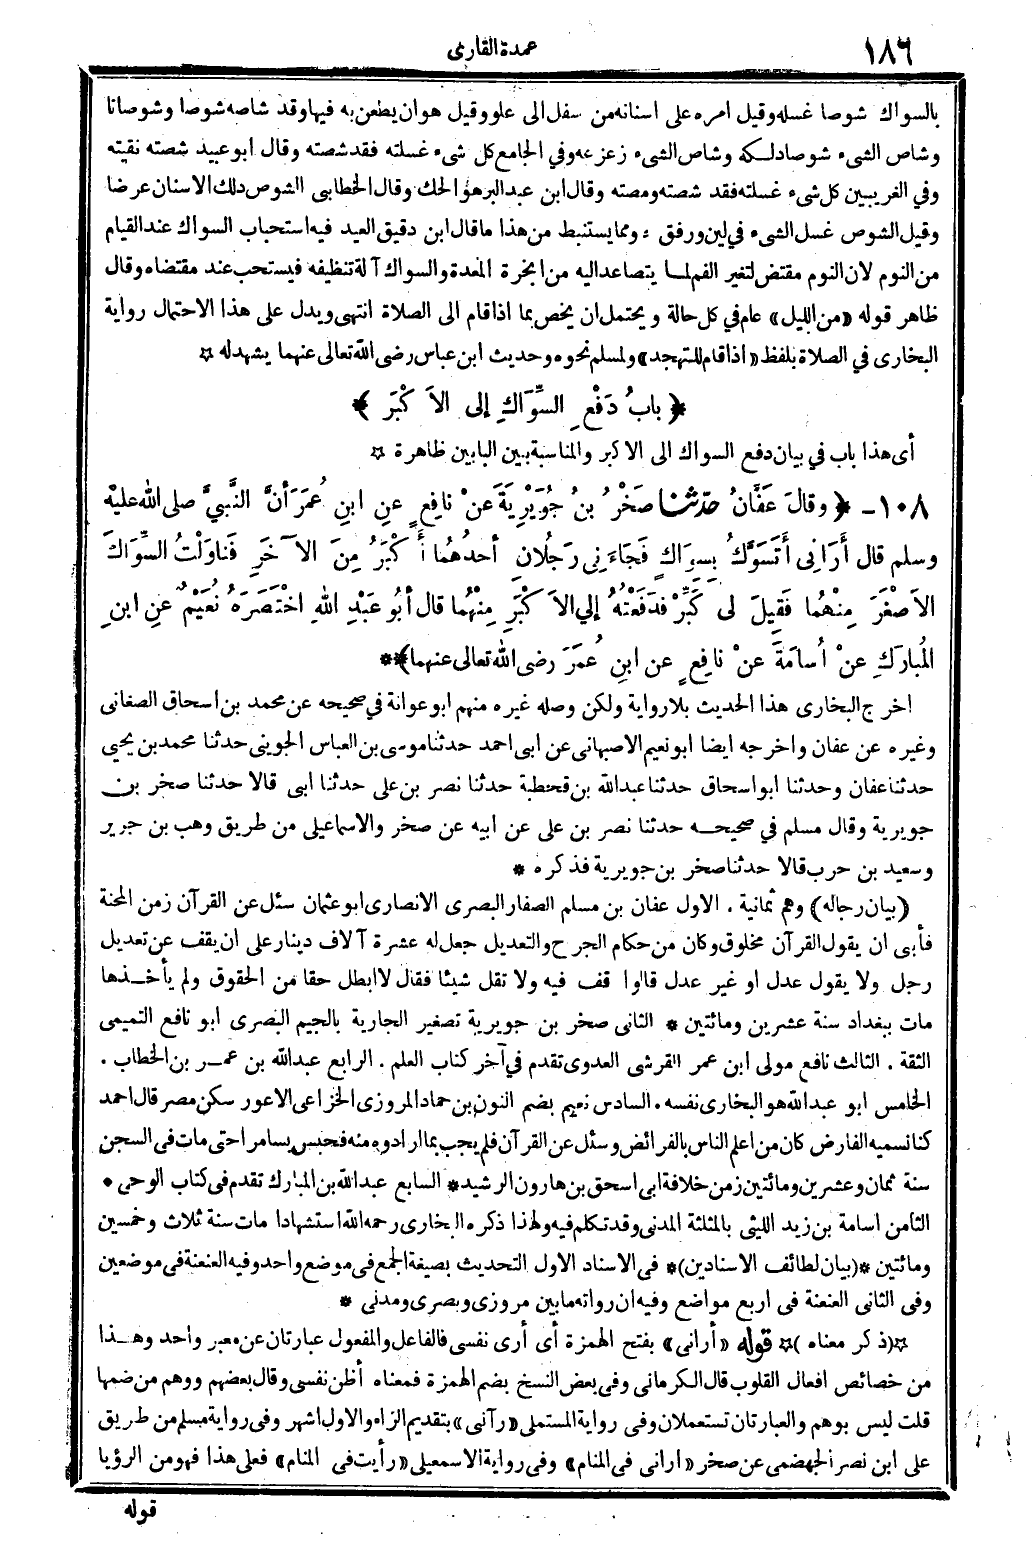 ١٨٦
عمدة القارى
بالسواك شوصا غسله وقيل امره على اسنانه من سفل الى علو وقيل هوان يطعن به فيها وقد شاصه شوصا وشوصانا
وشاص الشىء شوصا دلكه وشاص الشىء زعزعه وفي الجامع كل شىء غسلته فقد شصته وقال ابو عبيد شصته نقيته
وفي الغريبين كل شىء غسلته فقد شصته ومصته وقال ابن عبد البر هو الحك وقال الخطابى الشوص دلك الاسنان عرضا
وقيل الشوص غسل الشىء في لين ورفق ؞ ومما يستنبط من هذا ما قال ابن دقيق العيد فيه استحباب السواك عند القيام
من النوم لان النوم مقتض لتغير الفم لما يتصاعد اليه من ابخرة المعدة والسواك آلة تنظيفه فيستحب عند مقتضاه وقال
ظاهر قوله «من الليل» عام في كل حالة ويحتمل ان يخص بما اذا قام الى الصلاة انتهى ويدل على هذا الاحتمال رواية
البخارى في الصلاة بلفظ «اذا قام للتهجد» ولمسلم نحوه وحديث ابن عباس رضى الله تعالى عنهما يشهد له ☆
﴿ بابُ دَفْعِ السِّوَاكِ إلى الأَكْبَرِ ﴾
أى هذا باب في بيان دفع السواك الى الاكبر والمناسبة بين البابين ظاهرة ☆
١٠٨- ﴿ وقالَ عَفَّانُ حدّثنا صَخْرُ بنُ جُوَيْرِيَةَ عَنْ نافِعٍ عنِ ابنِ عُمَرَ أنَّ النَّبيَّ صلى الله عليه
وسلم قال أَرَانِى أَتَسَوَّكُ بِسِوَاكٍ فَجَاءَنِى رَجُلانِ أحدُهُما أَكْبَرُ مِنَ الآخَرِ فَناوَلْتُ السِّوَاكَ
الأَصْغَرَ مِنْهُما فَقِيلَ لى كَبِّرْ فدَفَعْتُهُ إلي الأَكْبَرِ مِنْهُما قال أبُو عَبْدِ اللهِ اخْتَصَرَهُ نُعَيْمٌ عنِ ابنِ
المُبارَكِ عنْ أُسامَةَ عنْ نافِعٍ عن ابنِ عُمَرَ رضى الله تعالى عنهما﴾**
اخرج البخارى هذا الحديث بلا رواية ولكن وصله غيره منهم ابو عوانة في صحيحه عن محمد بن اسحاق الصغانى
وغيره عن عفان واخرجه ايضا ابو نعيم الاصبهانى عن ابى احمد حدثنا موسى بن العباس الجوينى حدثنا محمد بن يحيى
حدثنا عفان وحدثنا ابو اسحاق حدثنا عبد الله بن قحطبة حدثنا نصر بن على حدثنا ابى قالا حدثنا صخر بن
جويرية وقال مسلم في صحيحه حدثنا نصر بن على عن ابيه عن صخر والاسماعيلى من طريق وهب بن جرير
وسعيد بن حرب قالا حدثنا صخر بن جويرية فذكره *
(بيان رجاله) وهم ثمانية . الاول عفان بن مسلم الصفار البصرى الانصارى ابو عثمان سئل عن القرآن زمن المحنة
فأبى ان يقول القرآن مخلوق وكان من حكام الجرح والتعديل جعل له عشرة آلاف دينار على ان يقف عن تعديل
رجل ولا يقول عدل او غير عدل قالوا قف فيه ولا تقل شيئا فقال لا ابطل حقا من الحقوق ولم يأخذها
مات ببغداد سنة عشرين ومائتين * الثانى صخر بن جويرية تصغير الجارية بالجيم البصرى ابو نافع التميمى
الثقة . الثالث نافع مولى ابن عمر القرشى العدوى تقدم في آخر كتاب العلم . الرابع عبد الله بن عمر بن الخطاب .
الخامس ابو عبد الله هو البخارى نفسه . السادس نعيم بضم النون بن حماد المروزى الخزاعى الاعور سكن مصر قال احمد
كنا نسميه الفارض كان من اعلم الناس بالفرائض وسئل عن القرآن فلم يجب بما ارادوه منه فحبس بسامرا حتى مات فى السجن
سنة ثمان وعشرين ومائتين زمن خلافة ابى اسحق بن هارون الرشيد * السابع عبد الله بن المبارك تقدم فى كتاب الوحى *
الثامن اسامة بن زيد الليثى بالمثلثة المدنى وقد تكلم فيه ولهذا ذكره البخارى رحمه الله استشهادا مات سنة ثلاث وخمسين
ومائتين *(بيان لطائف الاسنادين)* فى الاسناد الاول التحديث بصيغة الجمع فى موضع واحد وفيه العنعنة فى موضعين
وفى الثانى العنعنة فى اربع مواضع وفيه ان رواته ما بين مروزى وبصرى ومدنى *
☆(ذكر معناه)☆ قوله «أرانى» بفتح الهمزة أى أرى نفسى فالفاعل والمفعول عبارتان عن معبر واحد وهذا
من خصائص افعال القلوب قال الكرمانى وفى بعض النسخ بضم الهمزة فمعناه أظن نفسى وقال بعضهم ووهم من ضمها
قلت ليس بوهم والعبارتان تستعملان وفى رواية المستملى «رآنى» بتقديم الراء والاول اشهر وفى رواية مسلم من طريق
على ابن نصر الجهضمى عن صخر «ارانى فى المنام» وفى رواية الاسمعيلى «رأيت فى المنام» فعلى هذا فهو من الرؤيا
قوله